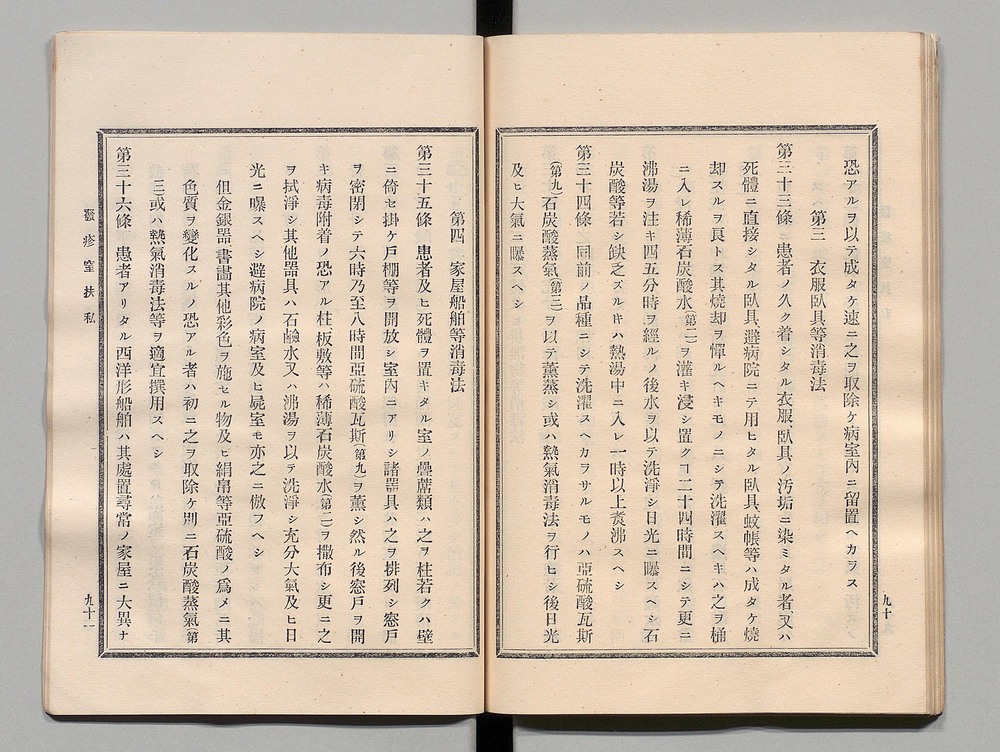 恐アルヲ以テ成タケ速ニ之ヲ取除ケ病室內ニ留置ヘカラス
第三　衣服臥具等消毒法
第三十三條　患者ノ久ク着シタル衣服、臥具ノ汚垢ニ染ミタル者、又ハ
死體ニ直接シタル臥具、避病院ニテ用ヒタル臥具、蚊帳等ハ成タケ燒
却スルヲ良トス其燒却ヲ憚ルヘキモノニシテ洗濯スヘキハ之ヲ桶
ニ入レ稀薄石炭酸水(第二)ヲ灌キ浸シ置クコ二十四時間ニシテ更ニ
沸湯ヲ注キ四五分時ヲ經ルノ後水ヲ以テ洗淨シ日光ニ曝スヘシ石
炭酸等若シ缺乏ズルキハ熱湯中ニ入レ一時以上煑沸スヘシ
第三十四條　同前ノ品種ニシテ洗濯スヘカラサルモノハ亞硫酸瓦斯
(第九)石炭酸蒸氣(第三)ヲ以テ薰蒸シ或ハ熱氣消毒法ヲ行ヒシ後日光
及ヒ大氣ニ曝スヘシ
九十
第四　家屋船舶等消毒法
第三十五條　患者及ヒ死體ヲ置キタル室ノ疊蓆類ハ之ヲ柱若クハ壁
ニ倚セ掛ケ戶棚等ヲ開放シ室內ニアリシ諸器具ハ之ヲ排列シ窓戶
ヲ密閉シテ六時乃至八時間亞硫酸瓦斯(第九)ヲ薰シ然ル後窓戶ヲ開
キ病毒附着ノ恐アル柱、板敷等ハ稀薄石炭酸水(第二)ヲ撒布シ更ニ之
ヲ拭淨シ其他器具ハ石鹼水又ハ沸湯ヲ以テ洗淨シ充分大氣及ヒ日
光ニ曝スヘシ避病院ノ病室及ヒ屍室モ亦之ニ倣フヘシ
但金銀器、書畫其他彩色ヲ施セル物及ヒ絹帛等亞硫酸ノ爲メニ其
色質ヲ變化スルノ恐アル者ハ初ニ之ヲ取除ケ別ニ石炭酸蒸氣(第
三)或ハ熱氣消毒法等ヲ適宜撰用スヘシ
第三十六條　患者アリタル西洋形船舶ハ其處置尋常ノ家屋ニ大異ナ
發疹窒扶私
九十一